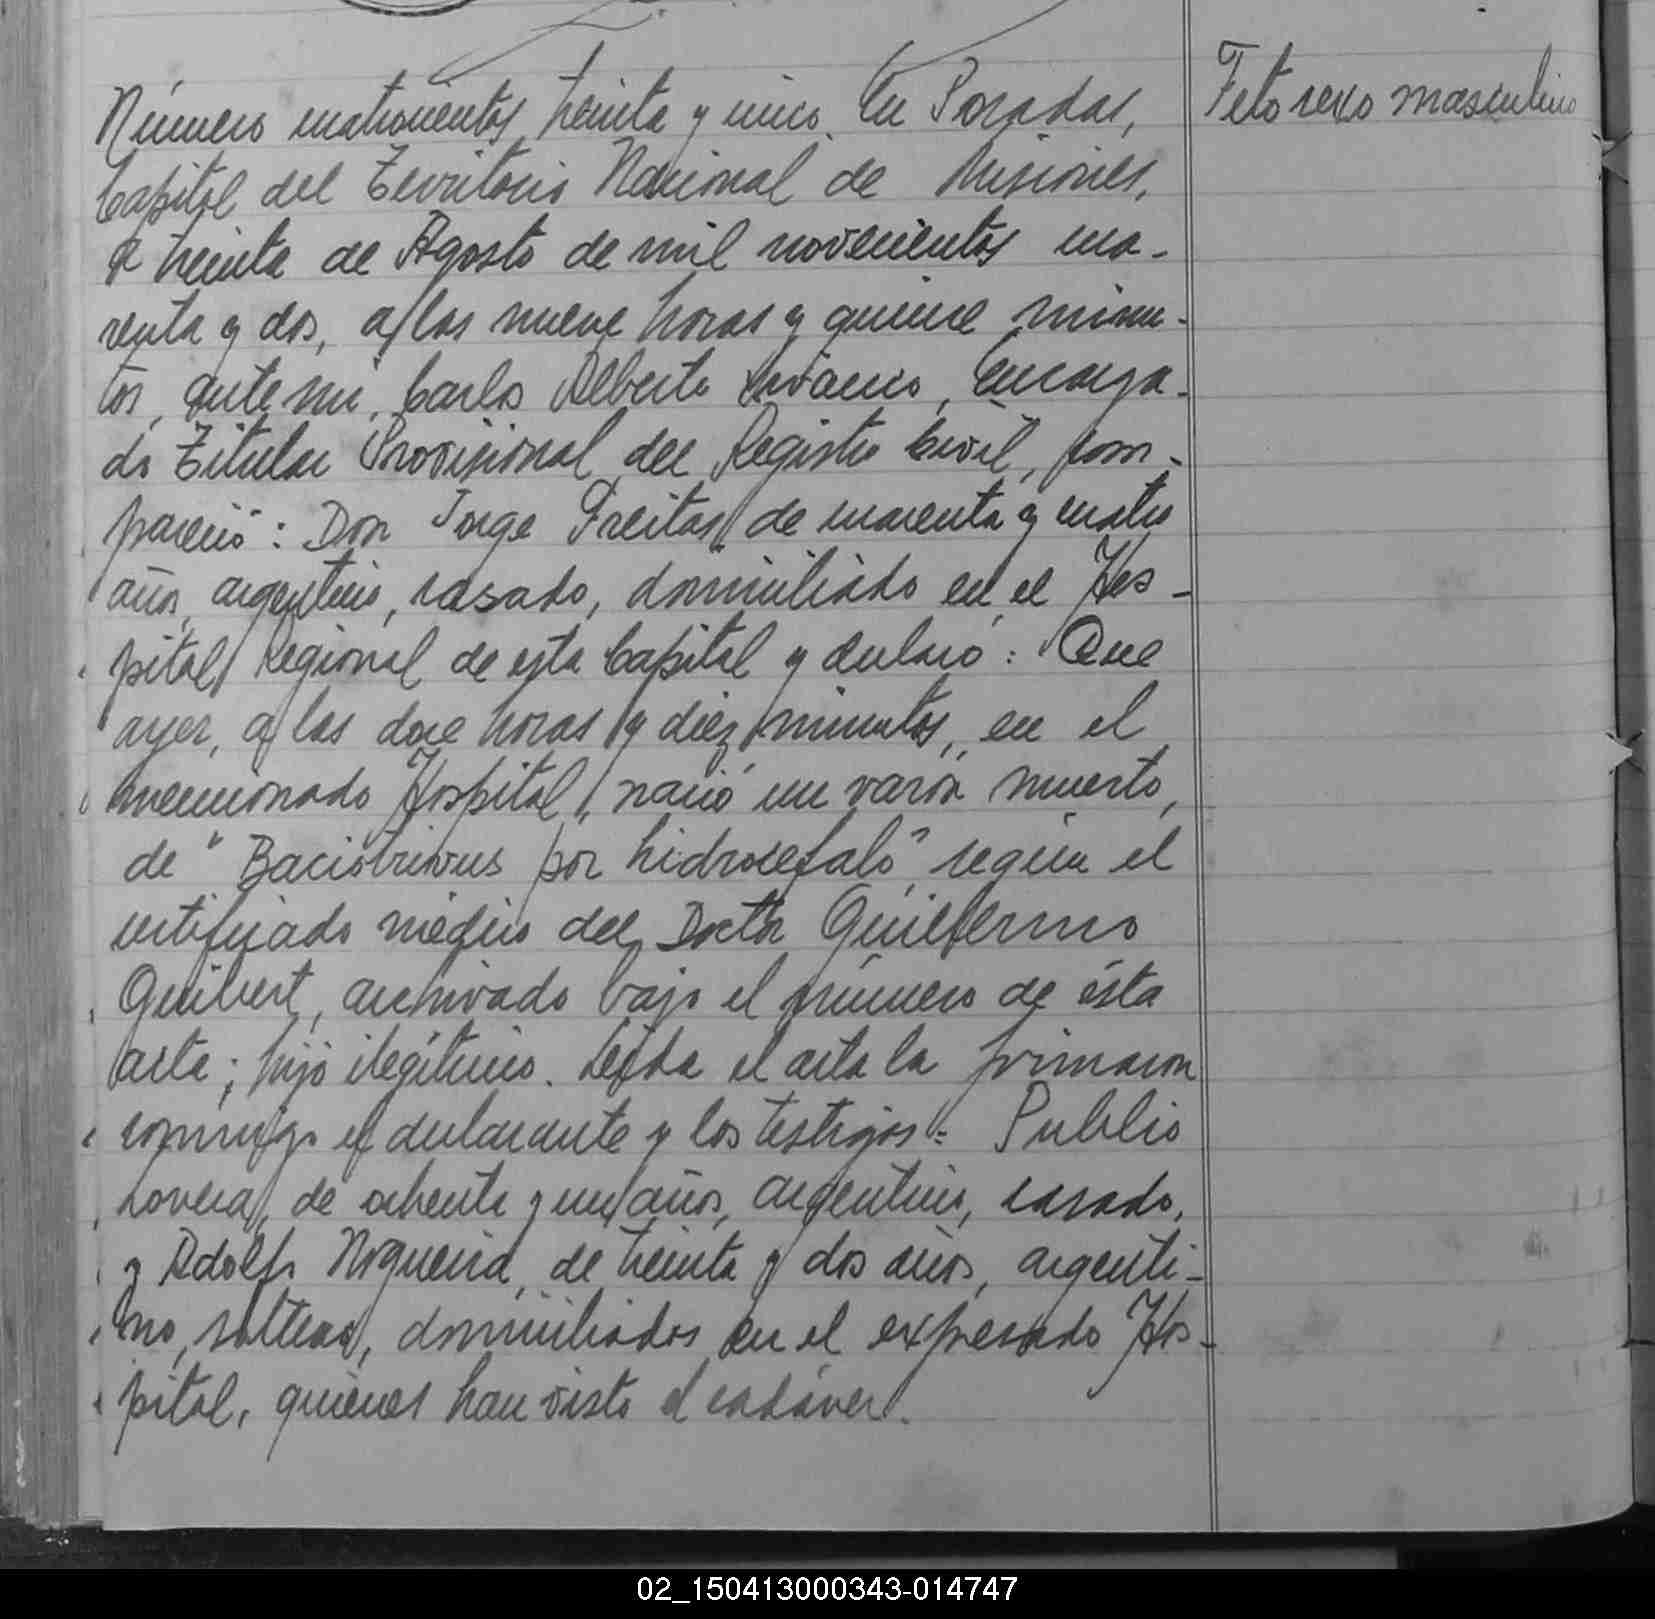 Número cuatrocientos treinta y cinco. En Posadas,
Capital del Territorio Nacional de Misiones,
a treinta de Agosto de mil novecientos cua-
renta y dos, a las nueve horas y quince minu-
tos, ante mi, Carlos Alberto Encarga-
do Titular Provisional del Registro Civil, com-
pareció: Don Jorge Freitas, de cuarenta y cuatro
años, argentino, casado, domiciliado en el Hos-
pital Regional de esta Capital y declaró: Que
ayer, a las doce horas y diez minutos, en el
mencionado Hospital, nació un varón muerto,
de " por hidrocefalo", según el
certificado médico del Doctor Guillermo
archivado bajo el número de ésta
acta; hijo ilegítimo. Leída el acta la firmaron
conmigo el declarante y los testigos: Publio
Lovera, de ochenta y un años, argentino, casado,
y Adolfo Nogueira, de treinta y dos años, argenti-
no, soltero, domiciliados en el expresado Hos-
pital, quienes han visto el cadáver.
Feto sexo masculino
02_150413000343-014747